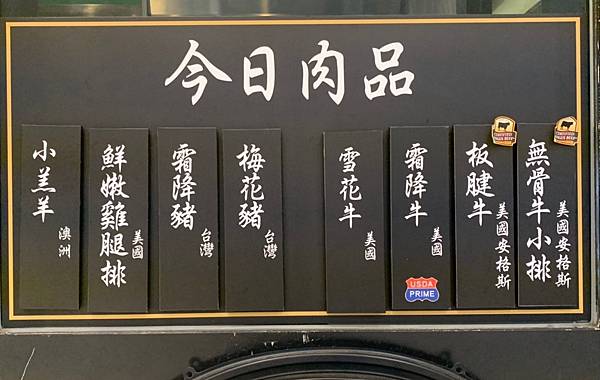 今日肉品
無骨牛小排
美國安格斯
板腱牛
美國安格斯
霜降牛
美國
USDA
PRIME
雪花牛
美國
梅花豬
台灣
霜降豬
台灣
鮮嫩雞腿排
美國
小羔羊
澳洲